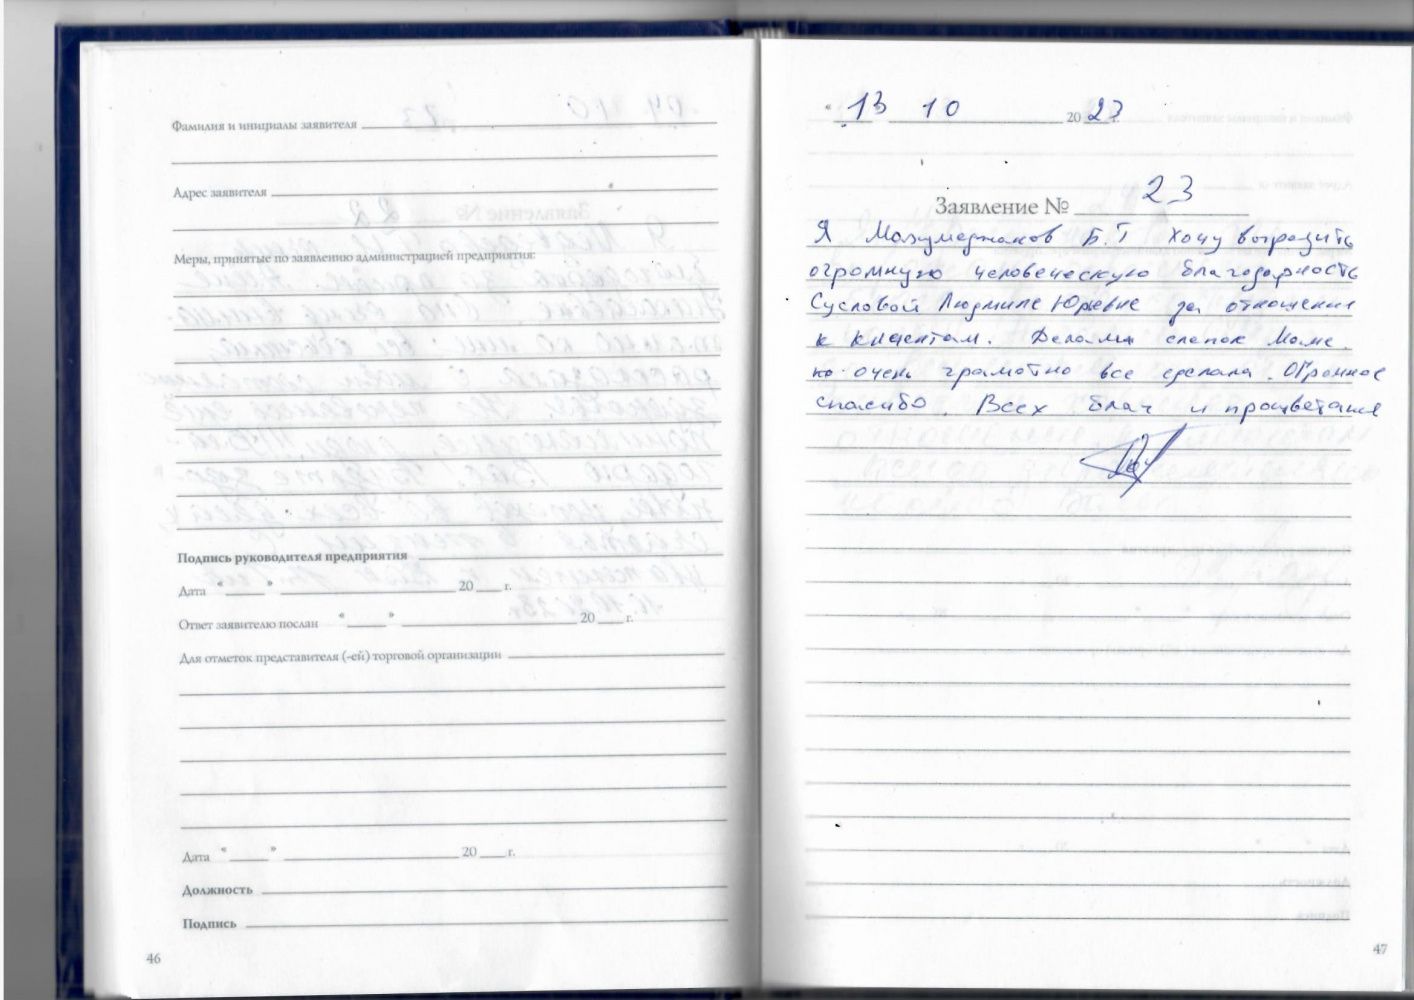 Фамилия и инициалы заявителя
Адрес заявителя
Меры, принятые по заявлению администрацией предприятия:
Подпись руководителя предприятия
Дата “ ” 20 г.
Ответ заявителю послан “ ” 20 г.
Для отметок представителя (-ей) торговой организации
Дата “ ” 20 г.
Должность
Подпись
46
“ 13 10 20 23 г.
Заявление № 23
Я Б.Т хочу выразить
огромную человеческую благодарность
Сусловой Людмиле Юрьевне за отношение
к клиентам. Делали слепок Маме.
очень грамотно все сделала. Огромное
спасибо. Всех благ и процветания
47